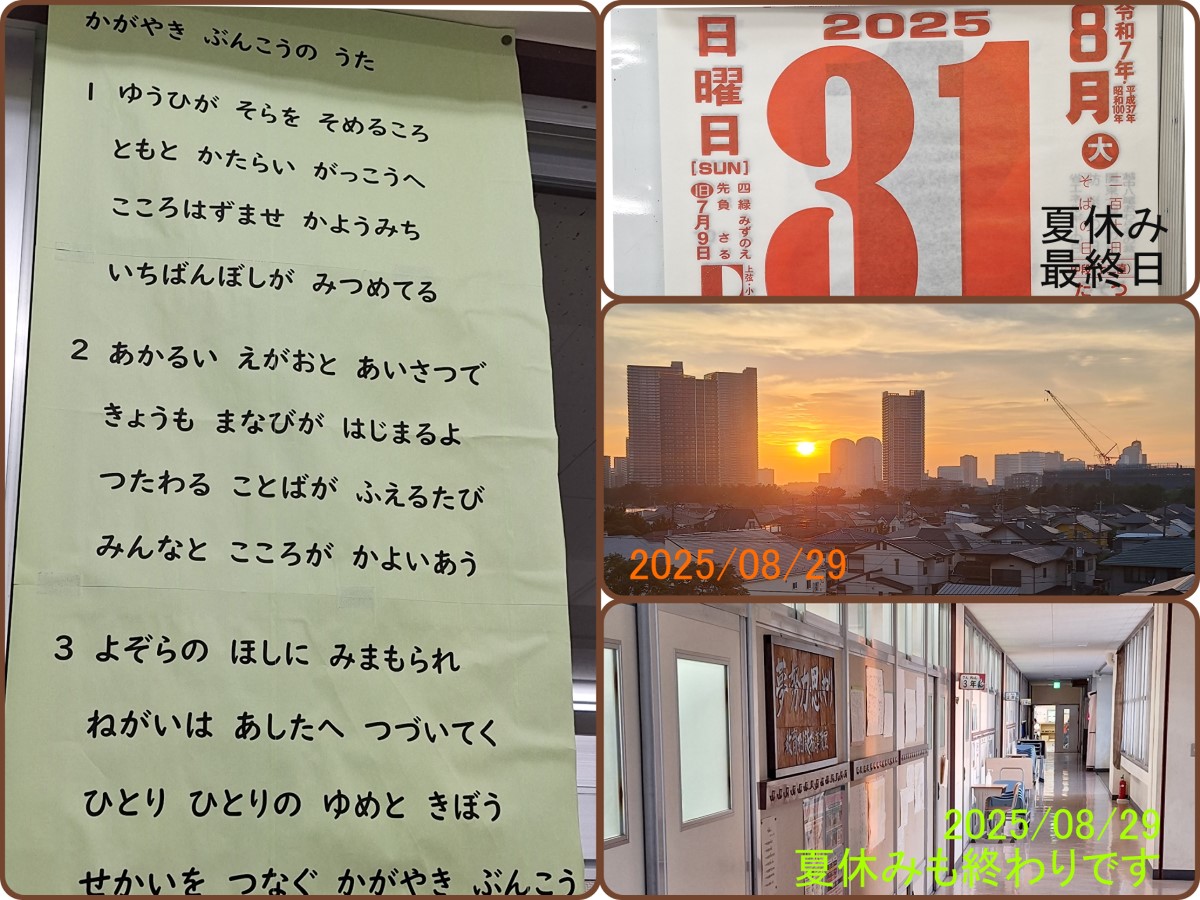 かがやき ぶんこうの うた
1 ゆうひが そらを そめるころ
ともと かたらい がっこうへ
こころはずませ かようみち
いちばんぼしが みつめてる
2 あかるい えがおと あいさつで
きょうも まなびが はじまるよ
つたわる ことばが ふえるたび
みんなと こころが かよいあう
3 よぞらの ほしに みまもられ
ねがいは あしたへ つづいてく
ひとり ひとりの ゆめと きぼう
せかいを つなぐ かがやき ぶんこう
2025
令和7年
平成37年
昭和100年
8月
大
二百十日
そばの日
31
日曜日
[SUN]
四緑 みずのえ
先負 さる
旧7月9日
上弦・小
夏休み
最終日
2025/08/29
夢 努力 思いやり
3年
2025/08/29
夏休みも終わりです